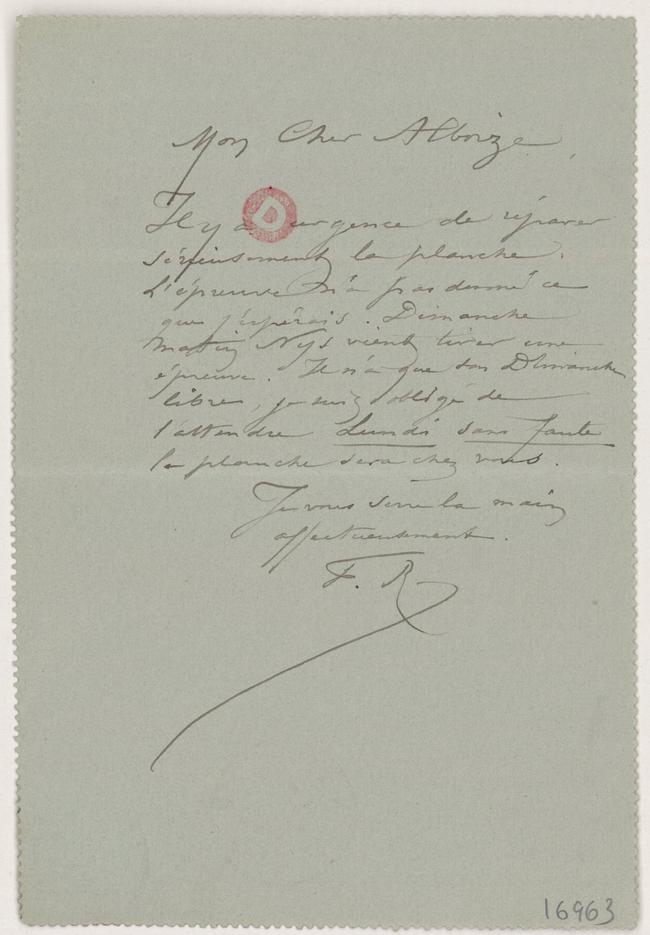 Mon Cher Alboize
Il y a urgence de réparer
D
sérieusement la planche.
L'épreuve n'a pas donné ce
que j'espérais. Dimanche
matin Nys vient tirer une
épreuve. Il n'a que son Dimanche
libre, je suis obligé de
l'attendre Lundi sans faute
la planche sera chez vous.
Je vous serre la main
affectueusement.
F. R
16963